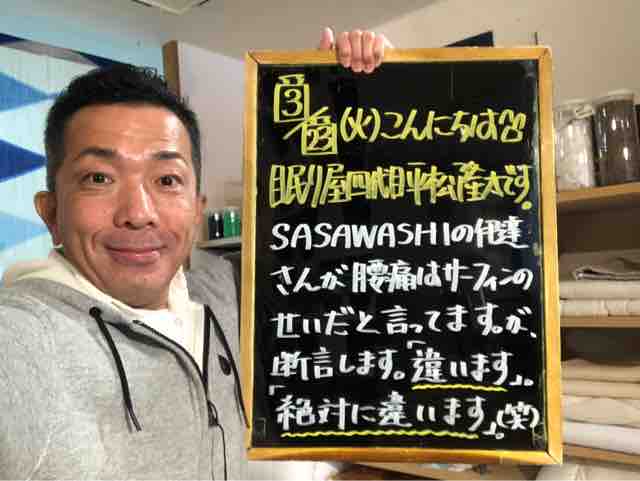 3/2(火)こんにちは
眠り屋四代目平松産太です。
SASAWASHIの伊達
さんが腰痛はサーフィンの
せいだと言ってます。が、
断言します。「違います」。
「絶対に違います」。(笑)